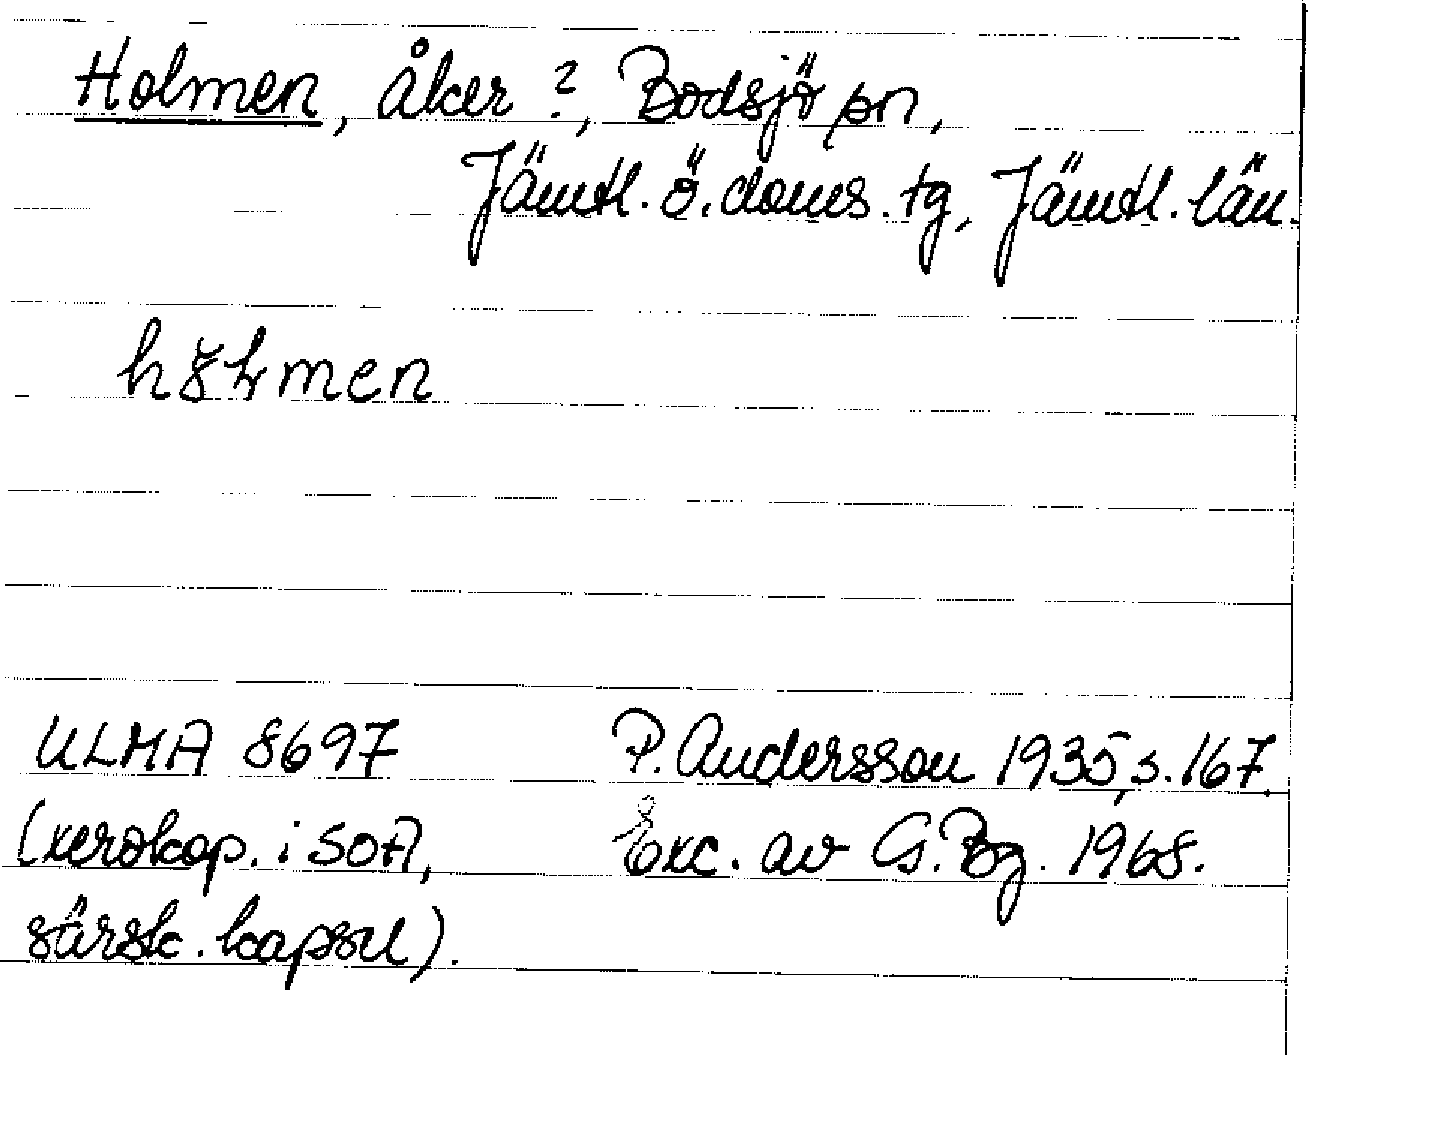 Holmen, åker ?, Bodsjö sn,
Jämtl. ö. doms. tg, Jämtl. län.
ULMA 8697
P. Andersson 1935, s. 167.
(xerokop. i SOA,
Exc. av G. Bg. 1968.
särsk. kapsel).